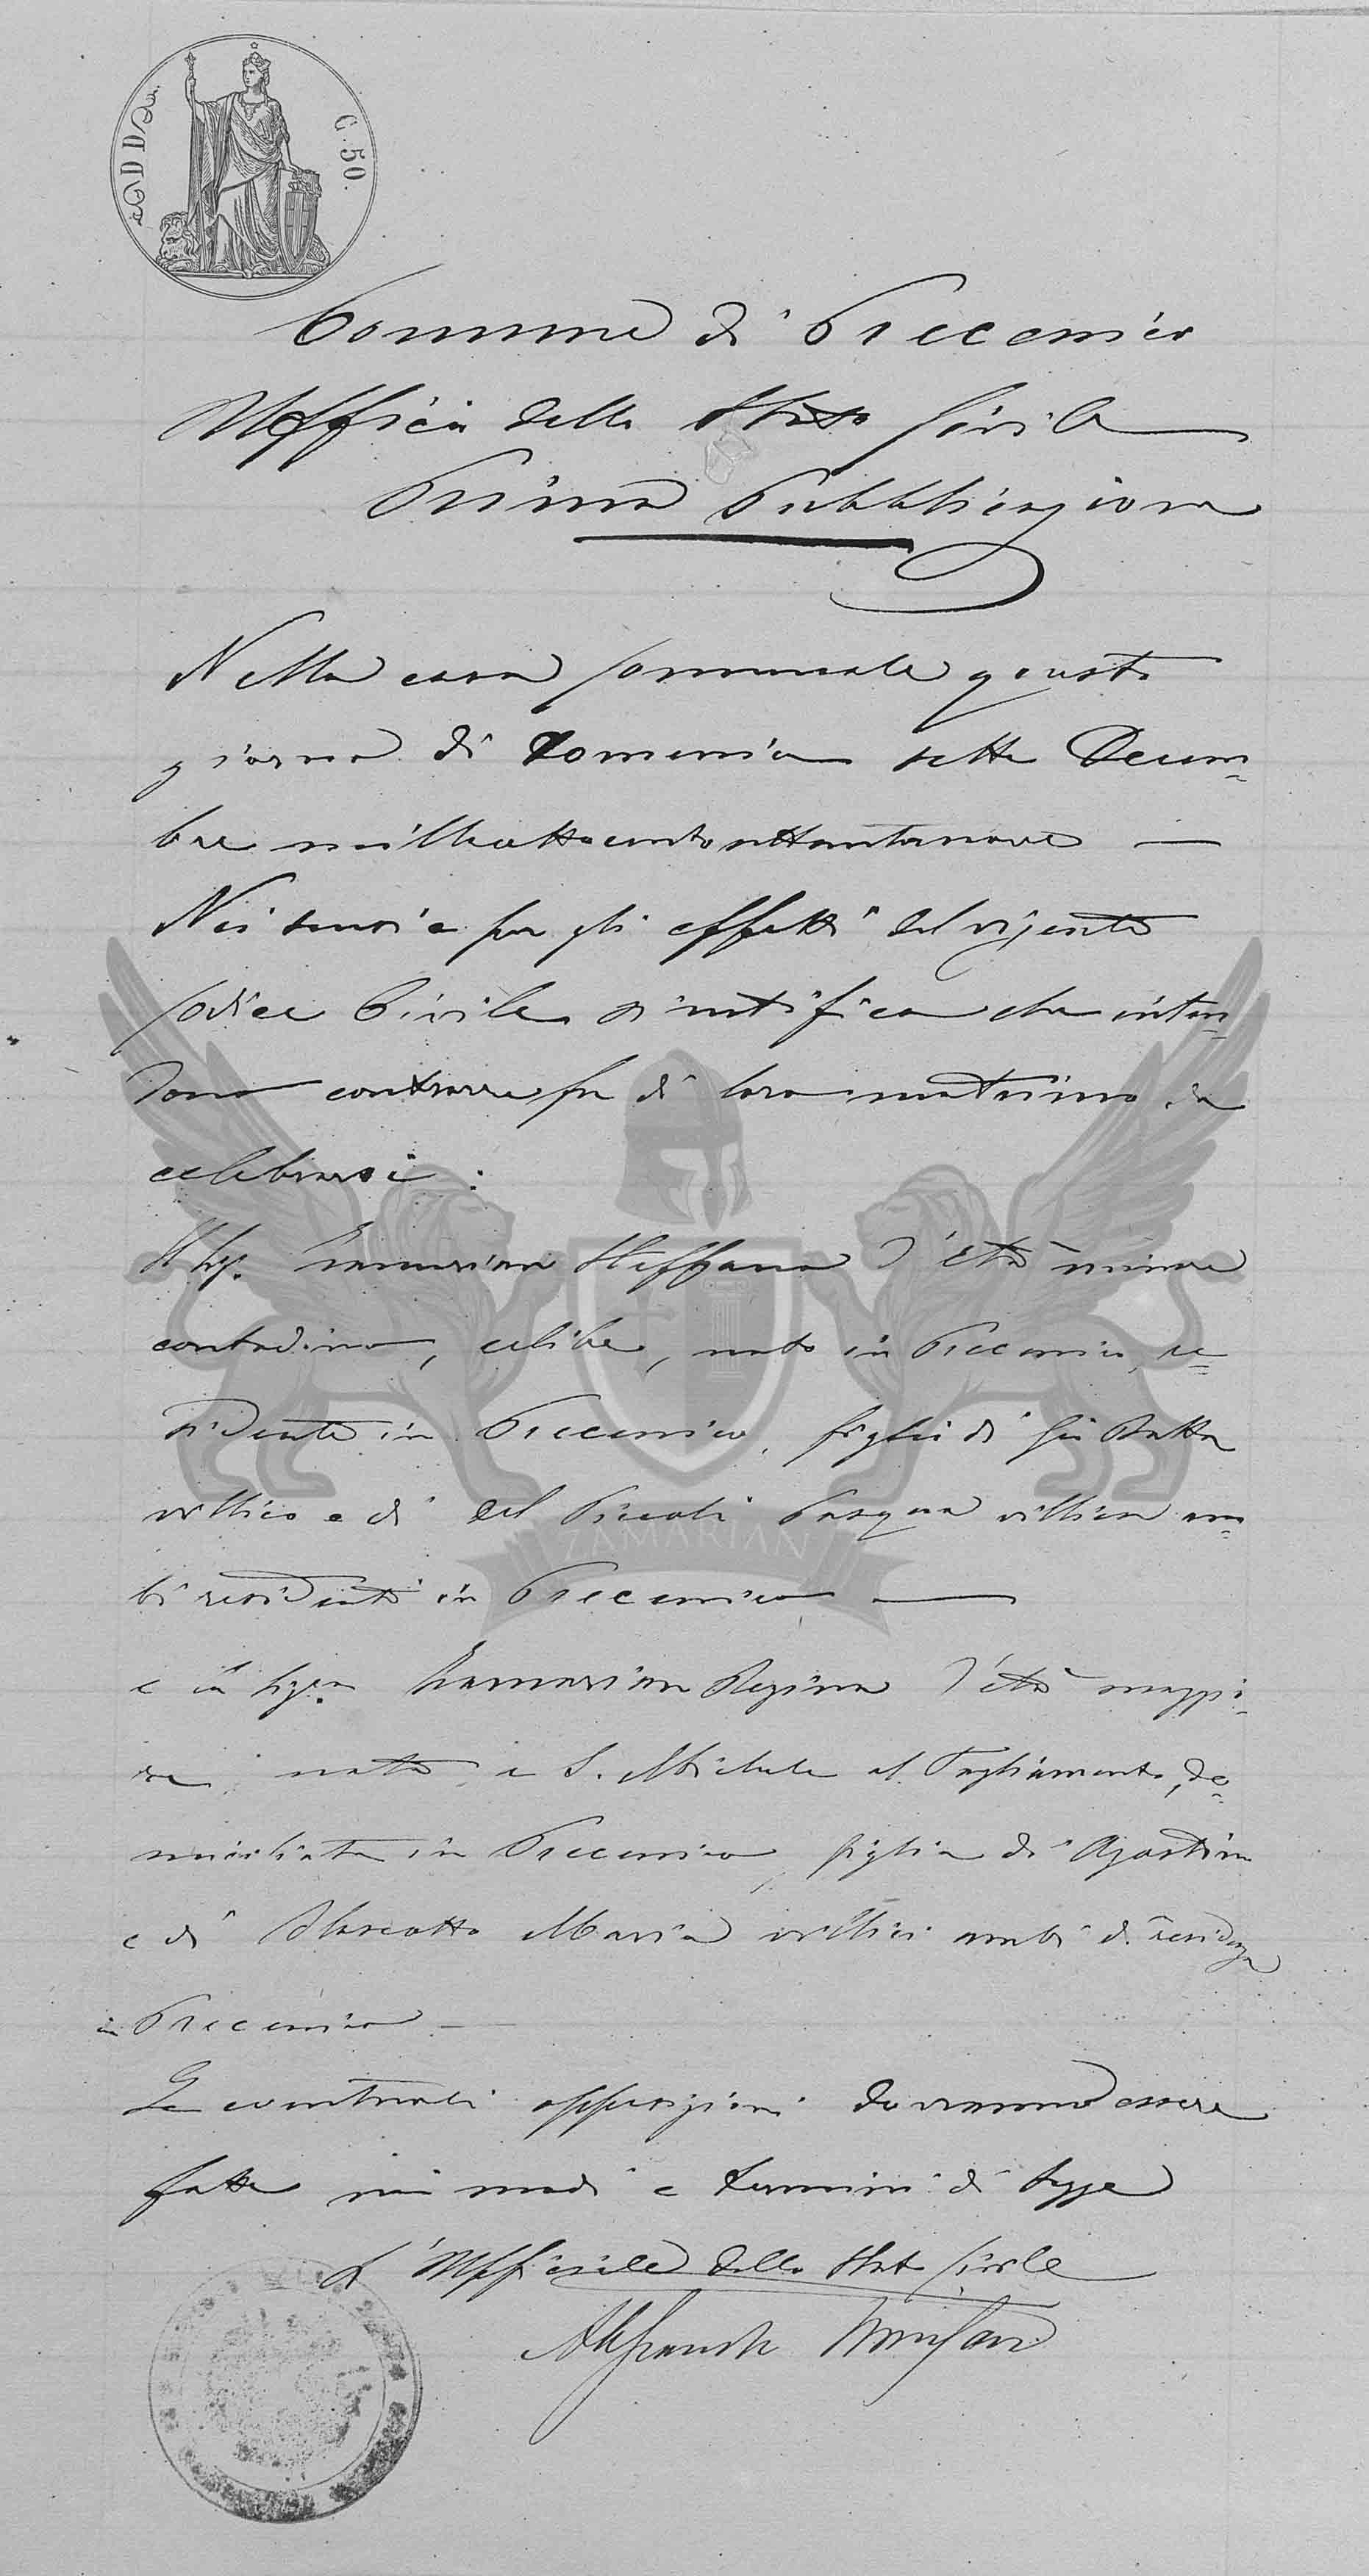 C. 50.
Comune di Precenico
Ufficio dello Stato Civile
Prima Pubblicazione
Nella casa Communale questo
giorno di Domenica sette Decem=
bre milleottocentosettantanove
Nei sensi e per gli effetti del vigente
Codice Civile si notifica che inten=
dono contrarre fra di loro matrimo da
celebrarsi:
Il Sig. Zamarian Steffano d'età minore
contadino, celibe, nato in Precenico, re=
sidente in Precenico, figlio di Gio Batta
villico e di Del Piccoli Pasqua villica am=
bi residenti in Precenico
e la Sigra Zamarian Regina d'età maggio=
re nata a S. Michele al Tagliamento, do=
miciliata in Precenico figlia di Agostino
e di Maria villici ambi di residenza
in Precenico
Le eventuali opposizioni dovranno essere
fatte nei modi e termini di legge
L'Ufficiale dello Stato Civile
ZAMARIAN